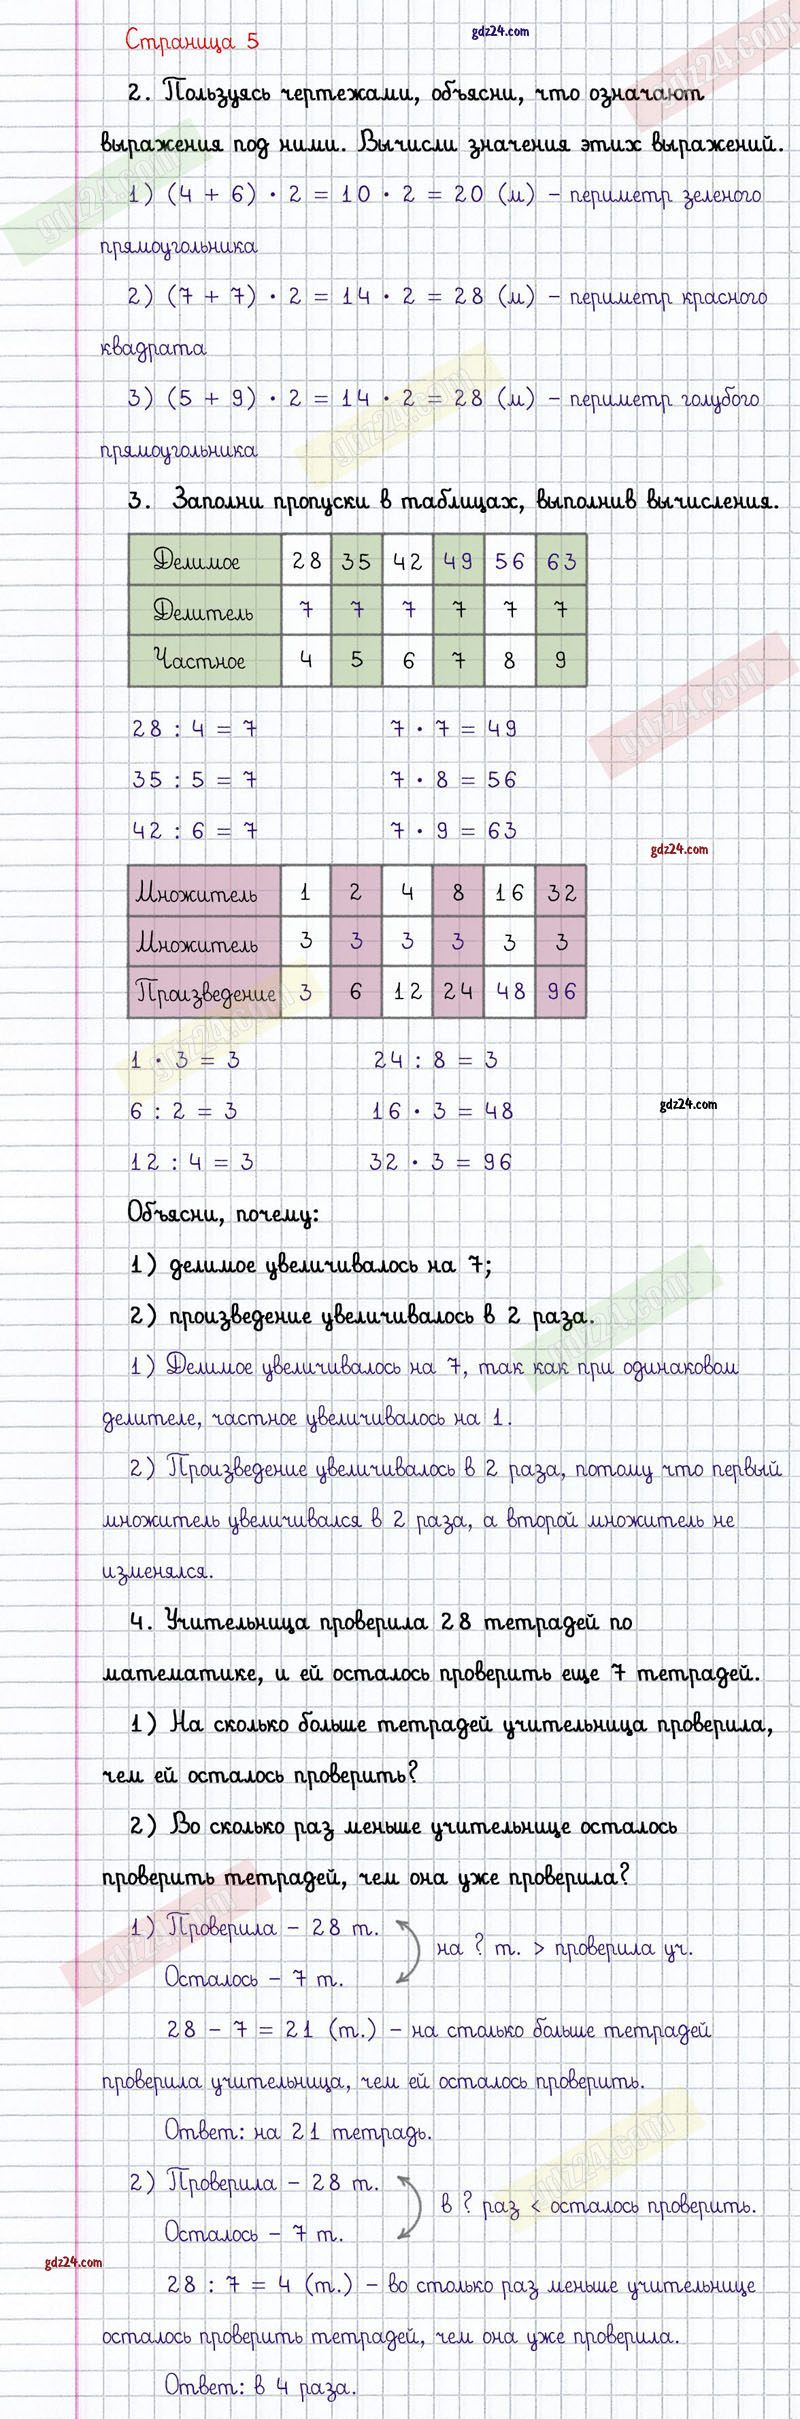 Страница 5
gdz24.com
gdz24.com
2. Пользуясь чертежами, объясни, что означают
выражения под ними. Вычисли значения этих выражений.
gdz24.com
1) (4 + 6) · 2 = 10 · 2 = 20 (м) – периметр зеленого
прямоугольника
2) (7 + 7) · 2 = 14 · 2 = 28 (м) – периметр красного
квадрата
3) (5 + 9) · 2 = 14 · 2 = 28 (м) – периметр голубого
gdz24.com
прямоугольника
3. Заполни пропуски в таблицах, выполнив вычисления.
Делимое 28 35 42 49 56 63
Делитель 7 7 7 7 7 7
Частное 4 5 6 7 8 9
gdz24.com
28 : 4 = 7 7 · 7 = 49
35 : 5 = 7 7 · 8 = 56
42 : 6 = 7 7 · 9 = 63
gdz24.com
Множитель 1 2 4 8 16 32
Множитель 3 3 3 3 3 3
Произведение 3 6 12 24 48 96
gdz24.com
1 · 3 = 3 24 : 8 = 3
6 : 2 = 3 16 · 3 = 48
gdz24.com
12 : 4 = 3 32 · 3 = 96
Объясни, почему:
1) делимое увеличивалось на 7;
2) произведение увеличивалось в 2 раза.
gdz24.com
1) Делимое увеличивалось на 7, так как при одинаковом
делителе, частное увеличивалось на 1.
2) Произведение увеличивалось в 2 раза, потому что первый
множитель увеличивался в 2 раза, а второй множитель не
изменялся.
4. Учительница проверила 28 тетрадей по
математике, и ей осталось проверить еще 7 тетрадей.
1) На сколько больше тетрадей учительница проверила,
чем ей осталось проверить?
2) Во сколько раз меньше учительнице осталось
проверить тетрадей, чем она уже проверила?
gdz24.com
1) Проверила – 28 т.
на ? т. > проверила уч.
Осталось – 7 т.
28 – 7 = 21 (т.) – на столько больше тетрадей
проверила учительница, чем ей осталось проверить.
Ответ: на 21 тетрадь.
gdz24.com
2) Проверила – 28 т.
в ? раз < осталось проверить.
Осталось – 7 т.
gdz24.com
28 : 7 = 4 (т.) – во столько раз меньше учительнице
осталось проверить тетрадей, чем она уже проверила.
Ответ: в 4 раза.